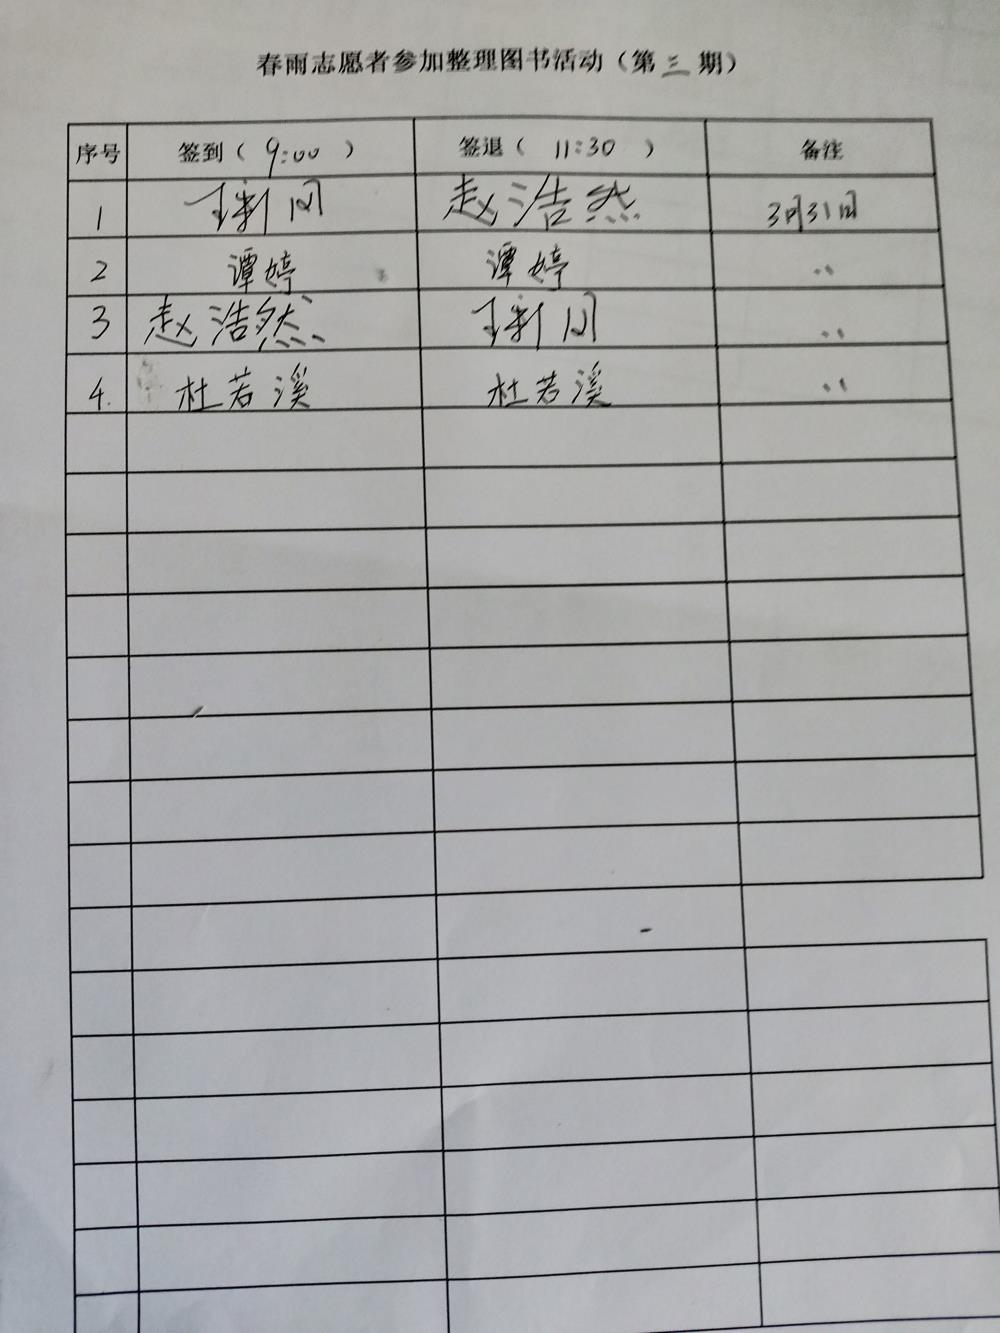 春雨志愿者参加整理图书活动（第三期）
序号 签到（9:00） 签退（11:30） 备注
1 赵浩然 3月31日
2 谭婷 谭婷 〃
3 赵浩然 〃
4. 杜若溪 杜若溪 〃